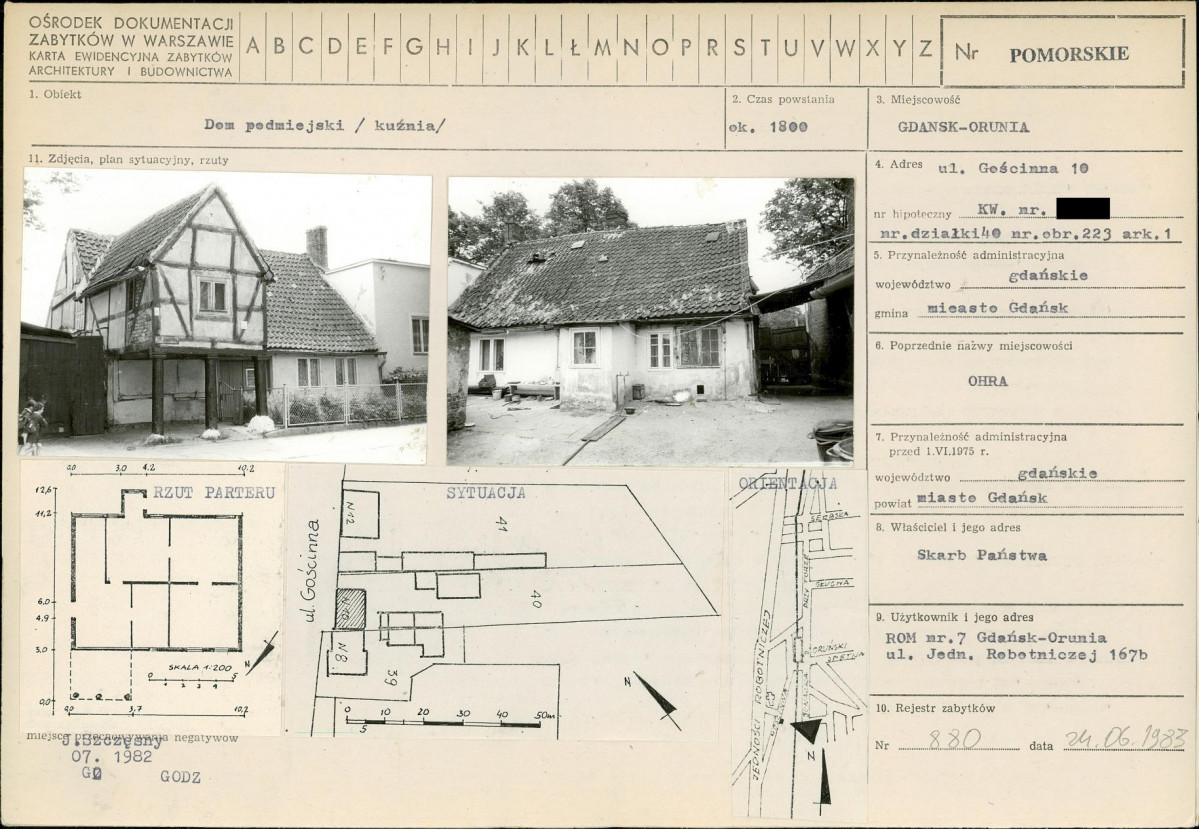 OŚRODEK DOKUMENTACJI
ZABYTKÓW W WARSZAWIE
KARTA EWIDENCYJNA ZABYTKÓW
ARCHITEKTURY I BUDOWNICTWA
A B C D E F G H I J K L Ł M N O P R S T U V W X Y Z
Nr POMORSKIE
1. Obiekt
Dom podmiejski / kuźnia/
2. Czas powstania
ok. 1800
3. Miejscowość
GDANSK-ORUNIA
11. Zdjęcia, plan sytuacyjny, rzuty
4. Adres ul. Gościnna 10
nr hipoteczny KW. nr.
nr.działki40 nr.obr.223 ark.1
5. Przynależność administracyjna
województwo gdańskie
gmina miasto Gdańsk
6. Poprzednie nazwy miejscowości
OHRA
7. Przynależność administracyjna
przed 1.VI.1975 r.
województwo gdańskie
powiat miasto Gdańsk
8. Właściciel i jego adres
Skarb Państwa
9. Użytkownik i jego adres
ROM nr.7 Gdańsk-Orunia
ul. Jedn. Robotniczej 167b
10. Rejestr zabytków
Nr 880 data 24.06.1983
0,0 3,0 4,2 10,2
RZUT PARTERU
12,6
11,2
6,0
4,9
3,0
0,0
SKALA 1:200
0 1 2 3 4 5
N
0,0 3,7 10,2
SYTUACJA
ul. Gościnna
N 12
41
40
N 10
N 8
39
N
0 5 10 20 30 40 50m
ORIENTACJA
SERBSKA
GŁUCHA
PRZY TORZE
ORUŃSKI
JEDNOŚCI ROBOTNICZEJ
N
miejsce przechowywania negatywów
J.Szczęsny
07. 1982
GODZ